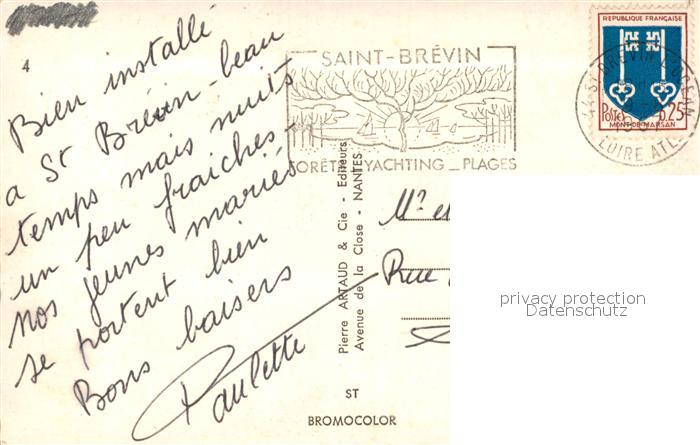 4
Bien installé
a St Brévin - beau
temps mais nuits
un peu fraiches -
Nos jeunes mariés
se portent bien
Bons baisers
Paulette
SAINT-BRÉVIN
FORÊT - YACHTING - PLAGES
REPUBLIQUE FRANÇAISE
POSTES 0,25
MONT-DE-MARSAN
44 ST BREVIN L'OCEAN
LOIRE ATL.
Pierre ARTAUD & Cie - Editeurs
Avenue de la Close - NANTES
Mr et
Rue
privacy protection
Datenschutz
ST
BROMOCOLOR